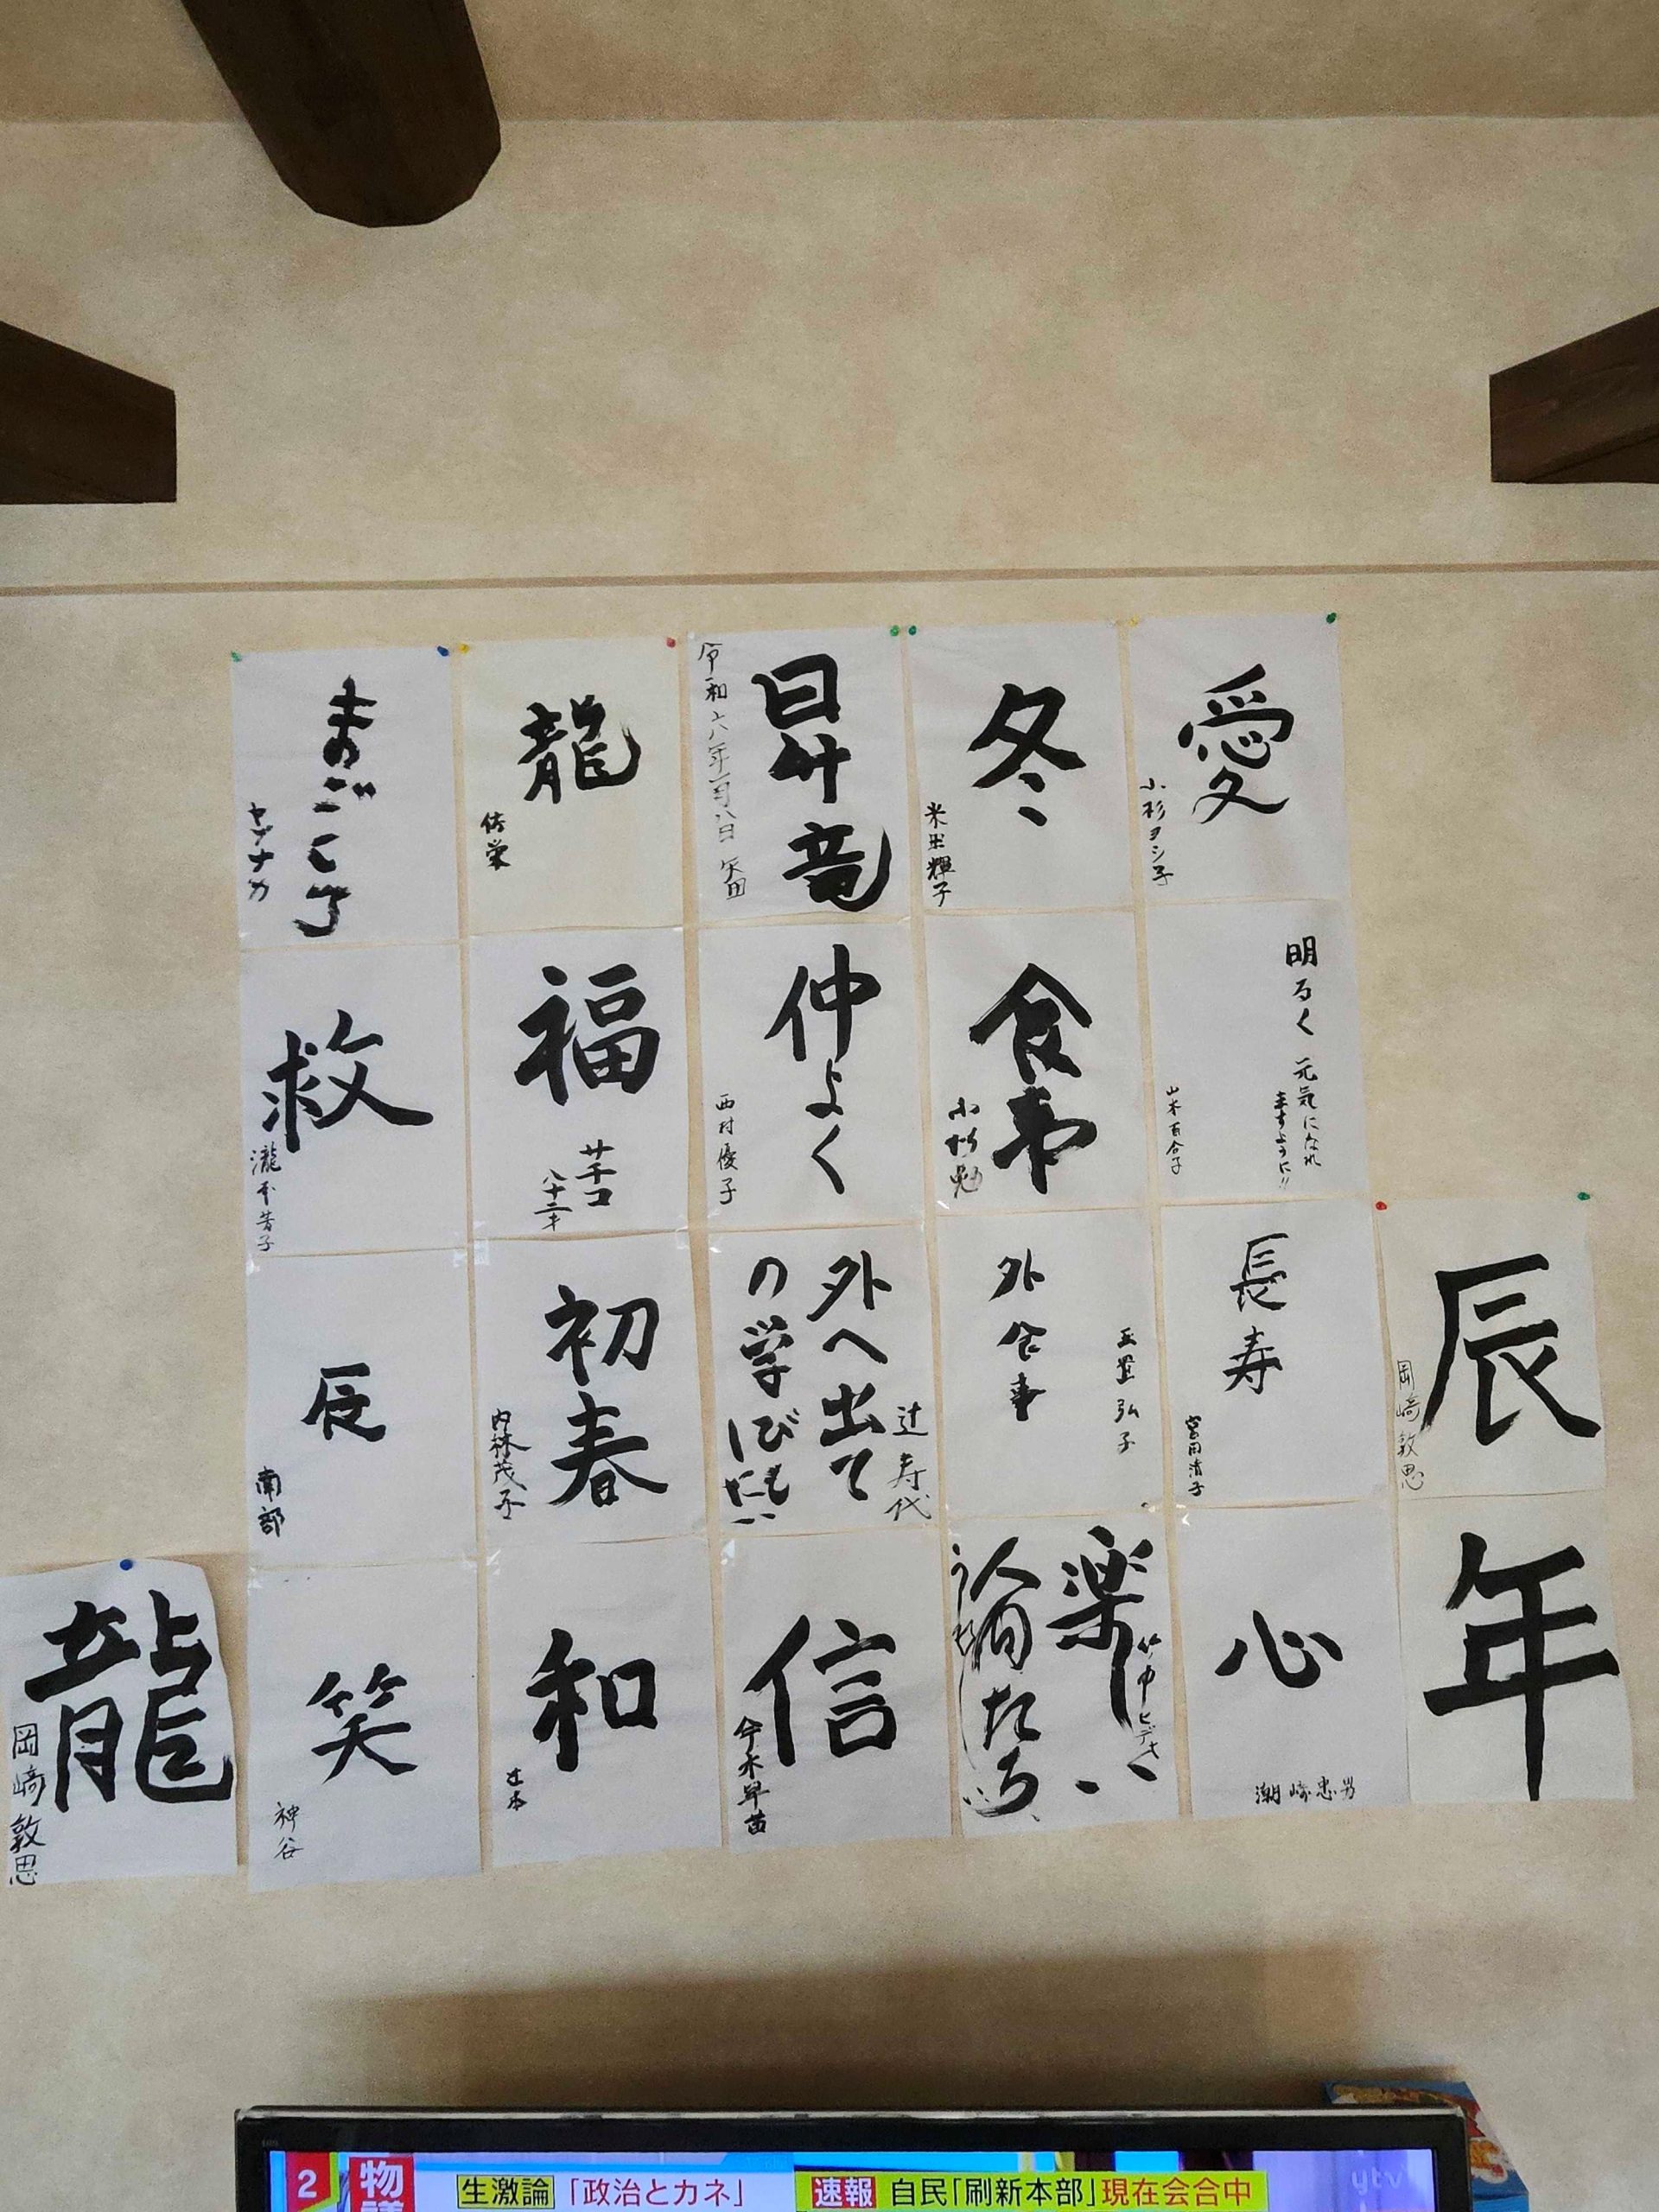 愛
小杉ヨシ子
冬
米田輝子
昇竜
令和六年一月八日 矢田
龍
佐栄
まごころ
ヤブナカ
明るく 元気になれ
ますように!!
山本百合子
食事
小杉勉
仲よく
西村優子
福
サチコ
八十二才
救
瀧本芳子
辰
年
岡﨑敦思
長寿
宮田清子
外食事
弘子
外へ出て
の学びたい
辻寿代
初春
内林茂子
辰
南部
心
潮﨑忠男
楽しい
人間たち
ヒデキ
信
今木早苗
和
辻本
笑
神谷
龍
岡﨑敦思
2
物議
生激論 「政治とカネ」
速報 自民「刷新本部」現在会合中
ytv